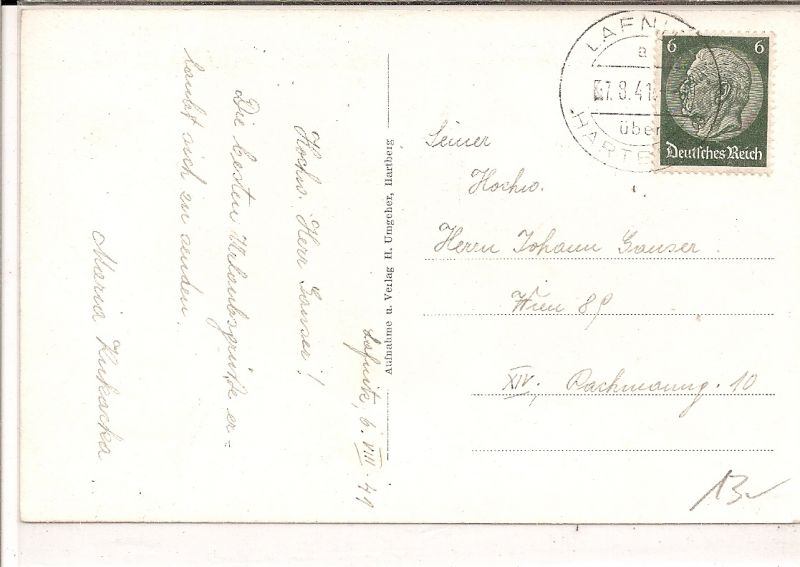 Lafnitz, 6. VIII. 41
Hochw. Herr Ganser!
Die besten Urlaubsgrüße er=
laubt sich zu senden.
Maria
Aufnahme u. Verlag H. Umgeher, Hartberg
LAFNI
a
7.8.41
über
HARTB
6 6
Deutsches Reich
Seiner
Hochw.
Herrn Johann Ganser.
Wien 89
XIV., 10